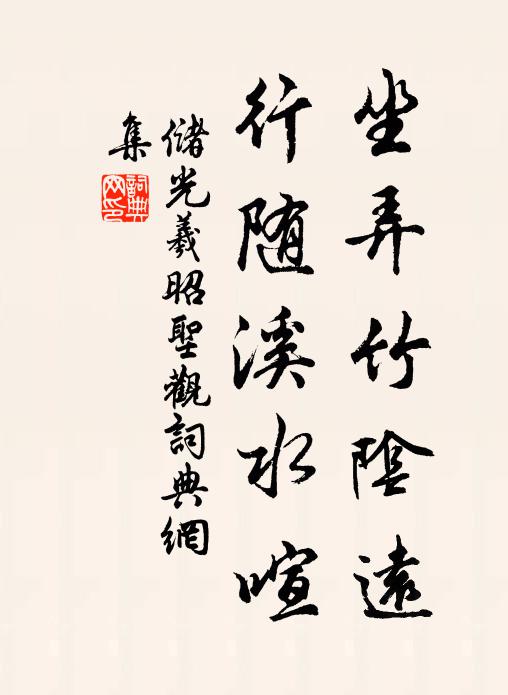 坐弄竹陰遠
行随溪水喧
儲光羲昭聖觀詞典網
集
詞典網印